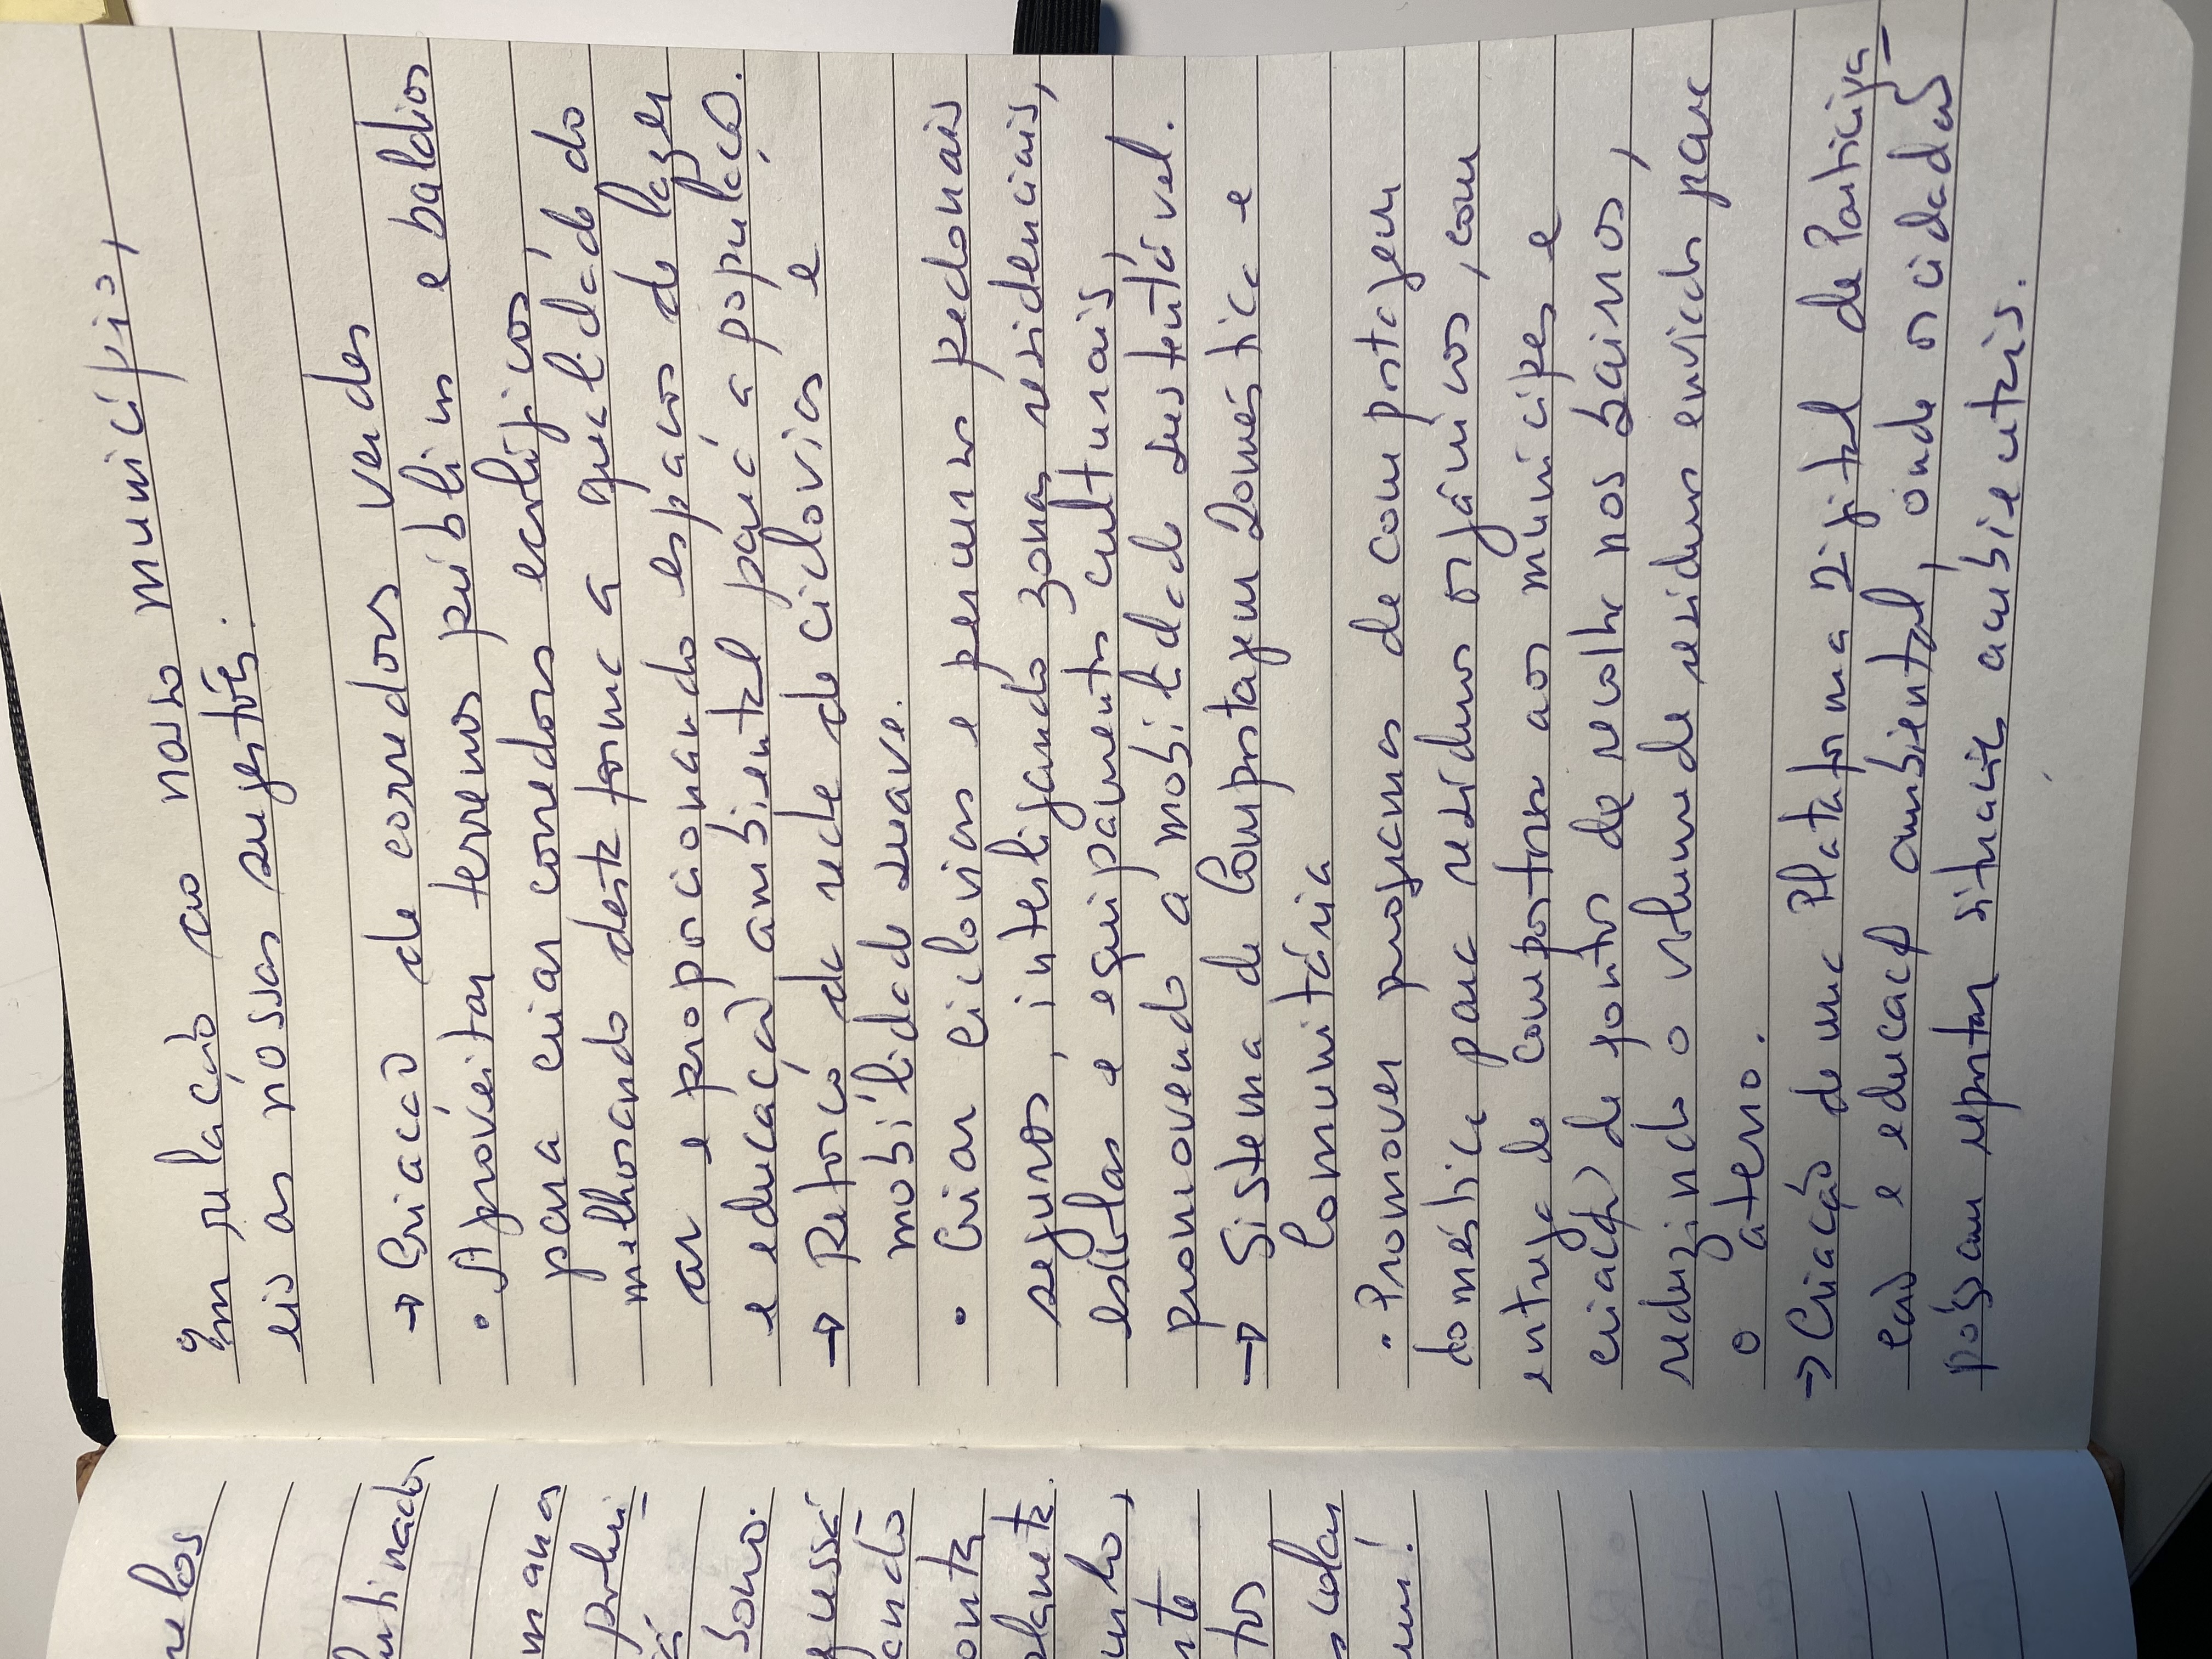 Em relação ao nosso município,
eis as nossas sugestões.
→ Criação de corredores verdes
• Aproveitar terrenos públicos e baldios
para criar corredores ecológicos,
melhorando desta forma a qualidade do
ar e proporcionando espaços de lazer
e educação ambiental para a população.
→ Reforço da rede de ciclovias e
mobilidade suave.
• Criar ciclovias e percursos pedonais
seguros, interligando zonas residenciais,
escolas e equipamentos culturais,
promovendo a mobilidade sustentável.
→ Sistema de Compostagem Doméstica e
Comunitária
• Promover programas de compostagem
doméstica para resíduos orgânicos, com
entrega de compostores aos munícipes e
criação de pontos de recolha nos bairros,
reduzindo o volume de resíduos enviados para
o aterro.
→ Criação de uma Plataforma Digital de Participa-
ção e educação ambiental, onde os cidadãos
possam reportar situações ambientais.
pelos
mana
sono.
ando
onta
planeta.
nte
tos